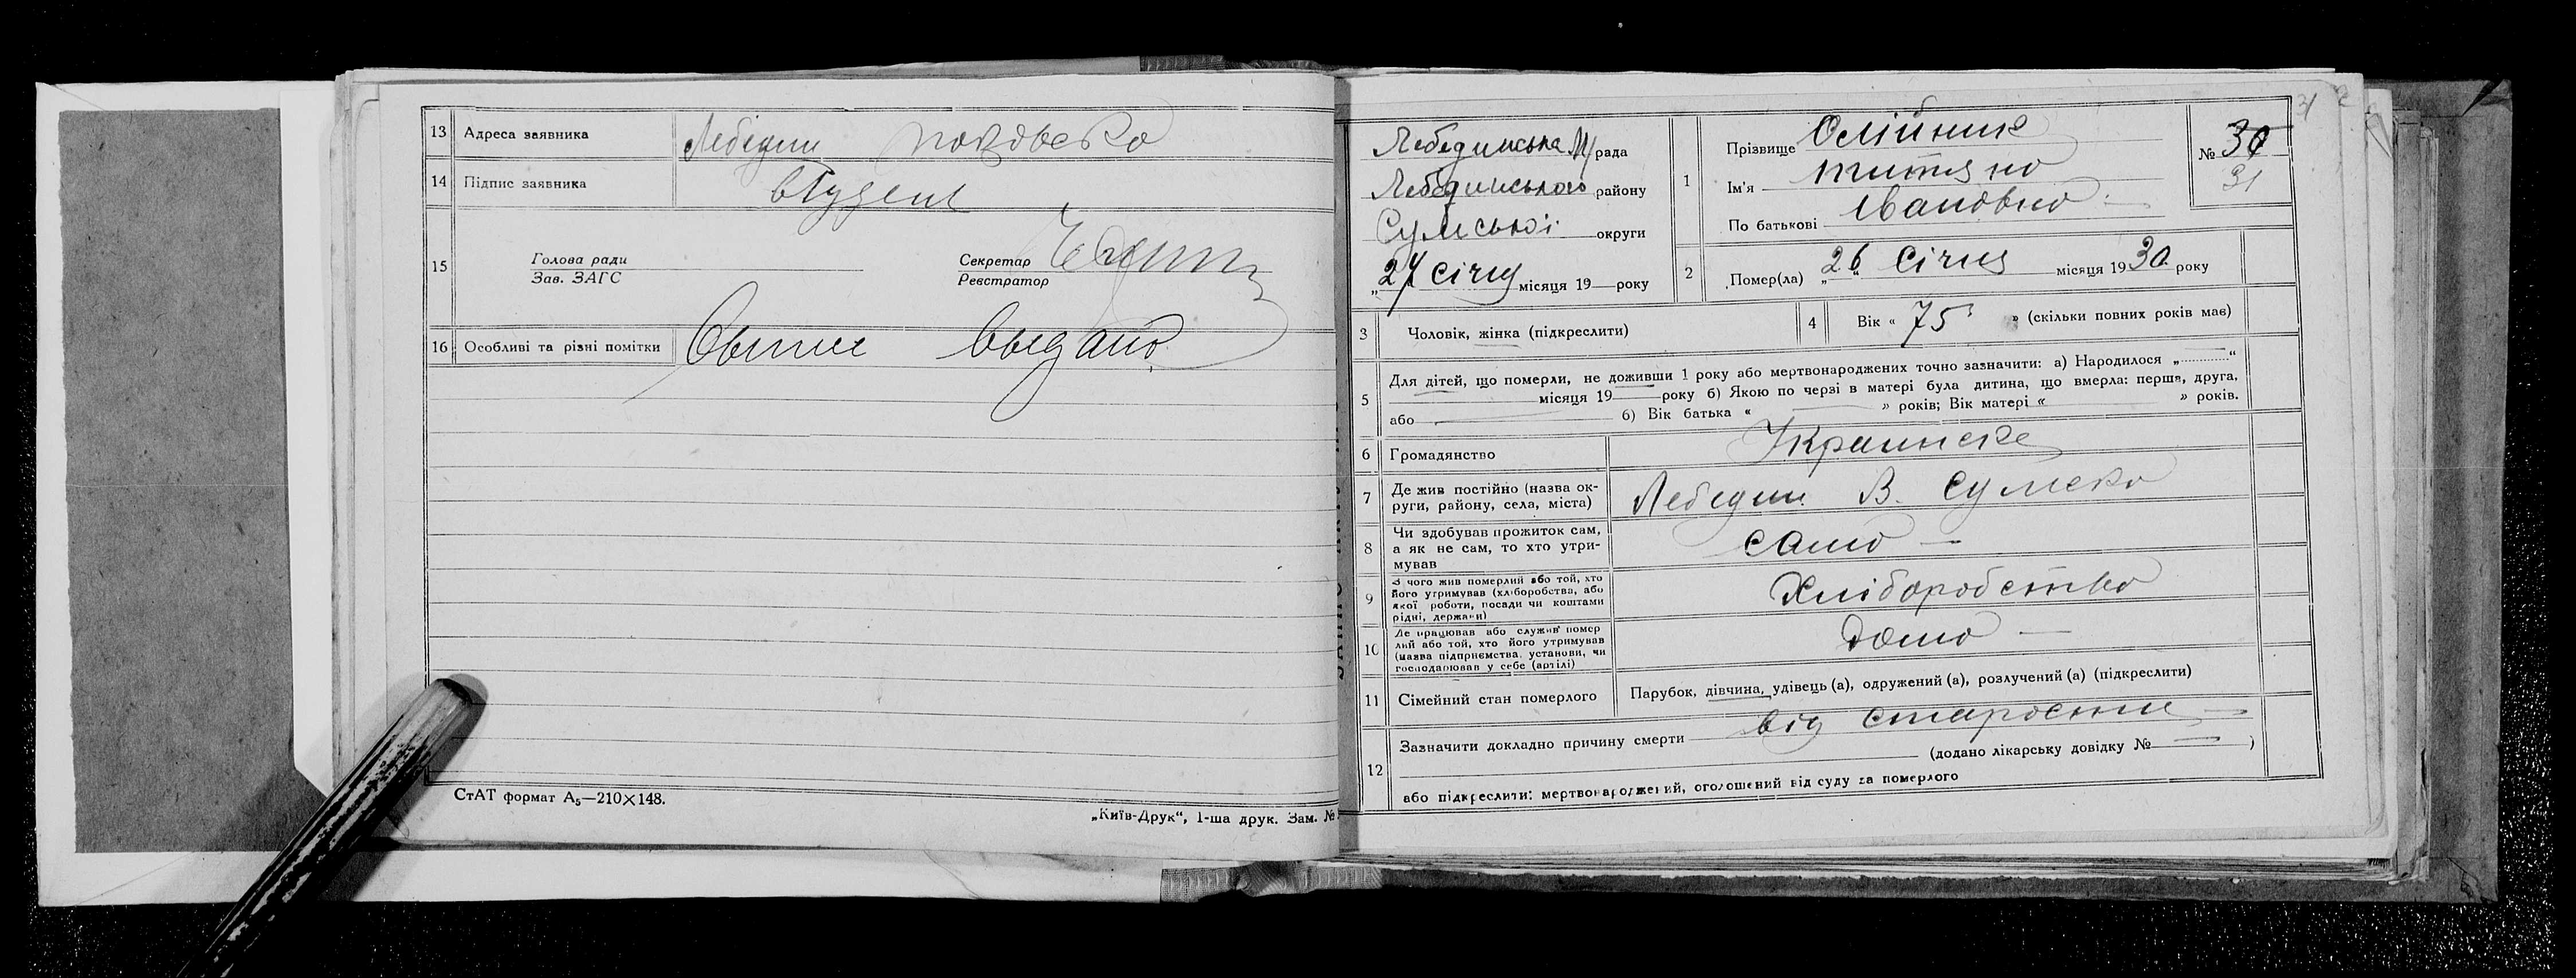 13 Адреса заявника Лебедин
14 Підпис заявника Студент
15 Голова ради
Зав. ЗАГС
Секретар
Реєстратор
16 Особливі та різні помітки выдано
СтАТ формат А5—210×148.
„Київ-Друк“, 1-ша друк. Зам. №
Лебединська М/рада
Лебединського району
Сумської округи
„27 січня місяця 19 року
1 Прізвище Олійник
Ім'я Титяна
По батькові Івановна
№ 30
31
31
2 Помер(ла) „26“ Січня місяця 1930 року
3 Чоловік, жінка (підкреслити)
4 Вік « 75 » (скільки повних років має)
5 Для дітей, що померли, не доживши 1 року або мертвонароджених точно зазначити: а) Народилося „ “
місяця 19 року б) Якою по черзі в матері була дитина, що вмерла: перша, друга,
або б) Вік батька « » років; Вік матері « » років.
6 Громадянство Украинске
7 Де жив постійно (назва ок-
руги, району, села, міста) Лебедин В. Сумска
8 Чи здобував прожиток сам,
а як не сам, то хто утри-
мував
сама
9 З чого жив померлий або той, хто
його утримував (хліборобства, або
якої роботи, посади чи коштами
рідні, держави)
Хліборобство
10 Де працював або служив помер
лий або той, хто його утримував
(назва підприємства, установи, чи
господарював у себе (артілі)
дома
11 Сімейний стан померлого Парубок, дівчина, удівець (а), одружений (а), розлучений (а) (підкреслити)
12 Зазначити докладно причину смерти від старости
(додано лікарську довідку № )
або підкреслити: мертвонароджений, оголошений від суду за померлого